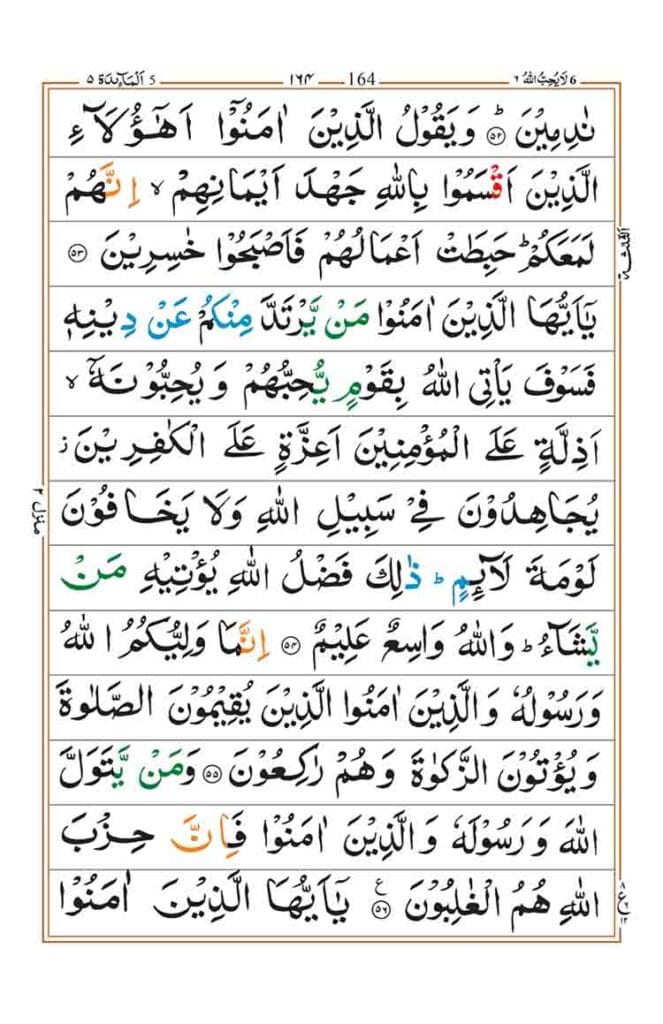 6 لَا یُحِبُّ اللّٰهُ ٦ 164 ١٦٤ 5 اَلْمَآئِدَة ٥
نٰدِمِیْنَ ﴿٥٢﴾ؕ وَ یَقُوْلُ الَّذِیْنَ اٰمَنُوْۤا اَهٰۤؤُلَآءِ
الَّذِیْنَ اَقْسَمُوْا بِاللّٰهِ جَهْدَ اَیْمَانِهِمْ ۙ اِنَّهُمْ
لَمَعَكُمْ ؕ حَبِطَتْ اَعْمَالُهُمْ فَاَصْبَحُوْا خٰسِرِیْنَ ﴿٥٣﴾
الثلثة
یٰۤاَیُّهَا الَّذِیْنَ اٰمَنُوْا مَنْ یَّرْتَدَّ مِنْكُمْ عَنْ دِیْنِهٖ
فَسَوْفَ یَاْتِی اللّٰهُ بِقَوْمٍ یُّحِبُّهُمْ وَ یُحِبُّوْنَهٗۤ ۙ
اَذِلَّةٍ عَلَی الْمُؤْمِنِیْنَ اَعِزَّةٍ عَلَی الْكٰفِرِیْنَ ؗ
یُجَاهِدُوْنَ فِیْ سَبِیْلِ اللّٰهِ وَلَا یَخَافُوْنَ
منزل ٢
لَوْمَةَ لَآئِمٍ ؕ ذٰلِكَ فَضْلُ اللّٰهِ یُؤْتِیْهِ مَنْ
یَّشَآءُ ؕ وَاللّٰهُ وَاسِعٌ عَلِیْمٌ ﴿٥٤﴾ اِنَّمَا وَلِیُّكُمُ اللّٰهُ
وَ رَسُوْلُهٗ وَ الَّذِیْنَ اٰمَنُوا الَّذِیْنَ یُقِیْمُوْنَ الصَّلٰوةَ
وَ یُؤْتُوْنَ الزَّكٰوةَ وَ هُمْ رٰكِعُوْنَ ﴿٥٥﴾ وَمَنْ یَّتَوَلَّ
اللّٰهَ وَ رَسُوْلَهٗ وَ الَّذِیْنَ اٰمَنُوْا فَاِنَّ حِزْبَ
اللّٰهِ هُمُ الْغٰلِبُوْنَ ﴿٥٦﴾ۧ یٰۤاَیُّهَا الَّذِیْنَ اٰمَنُوْا